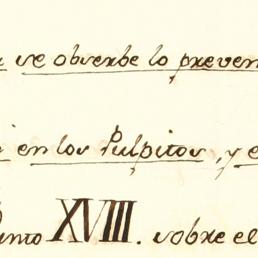 se obserbe lo preven
en los Pulpitos, y e
unto XVIII. sobre el